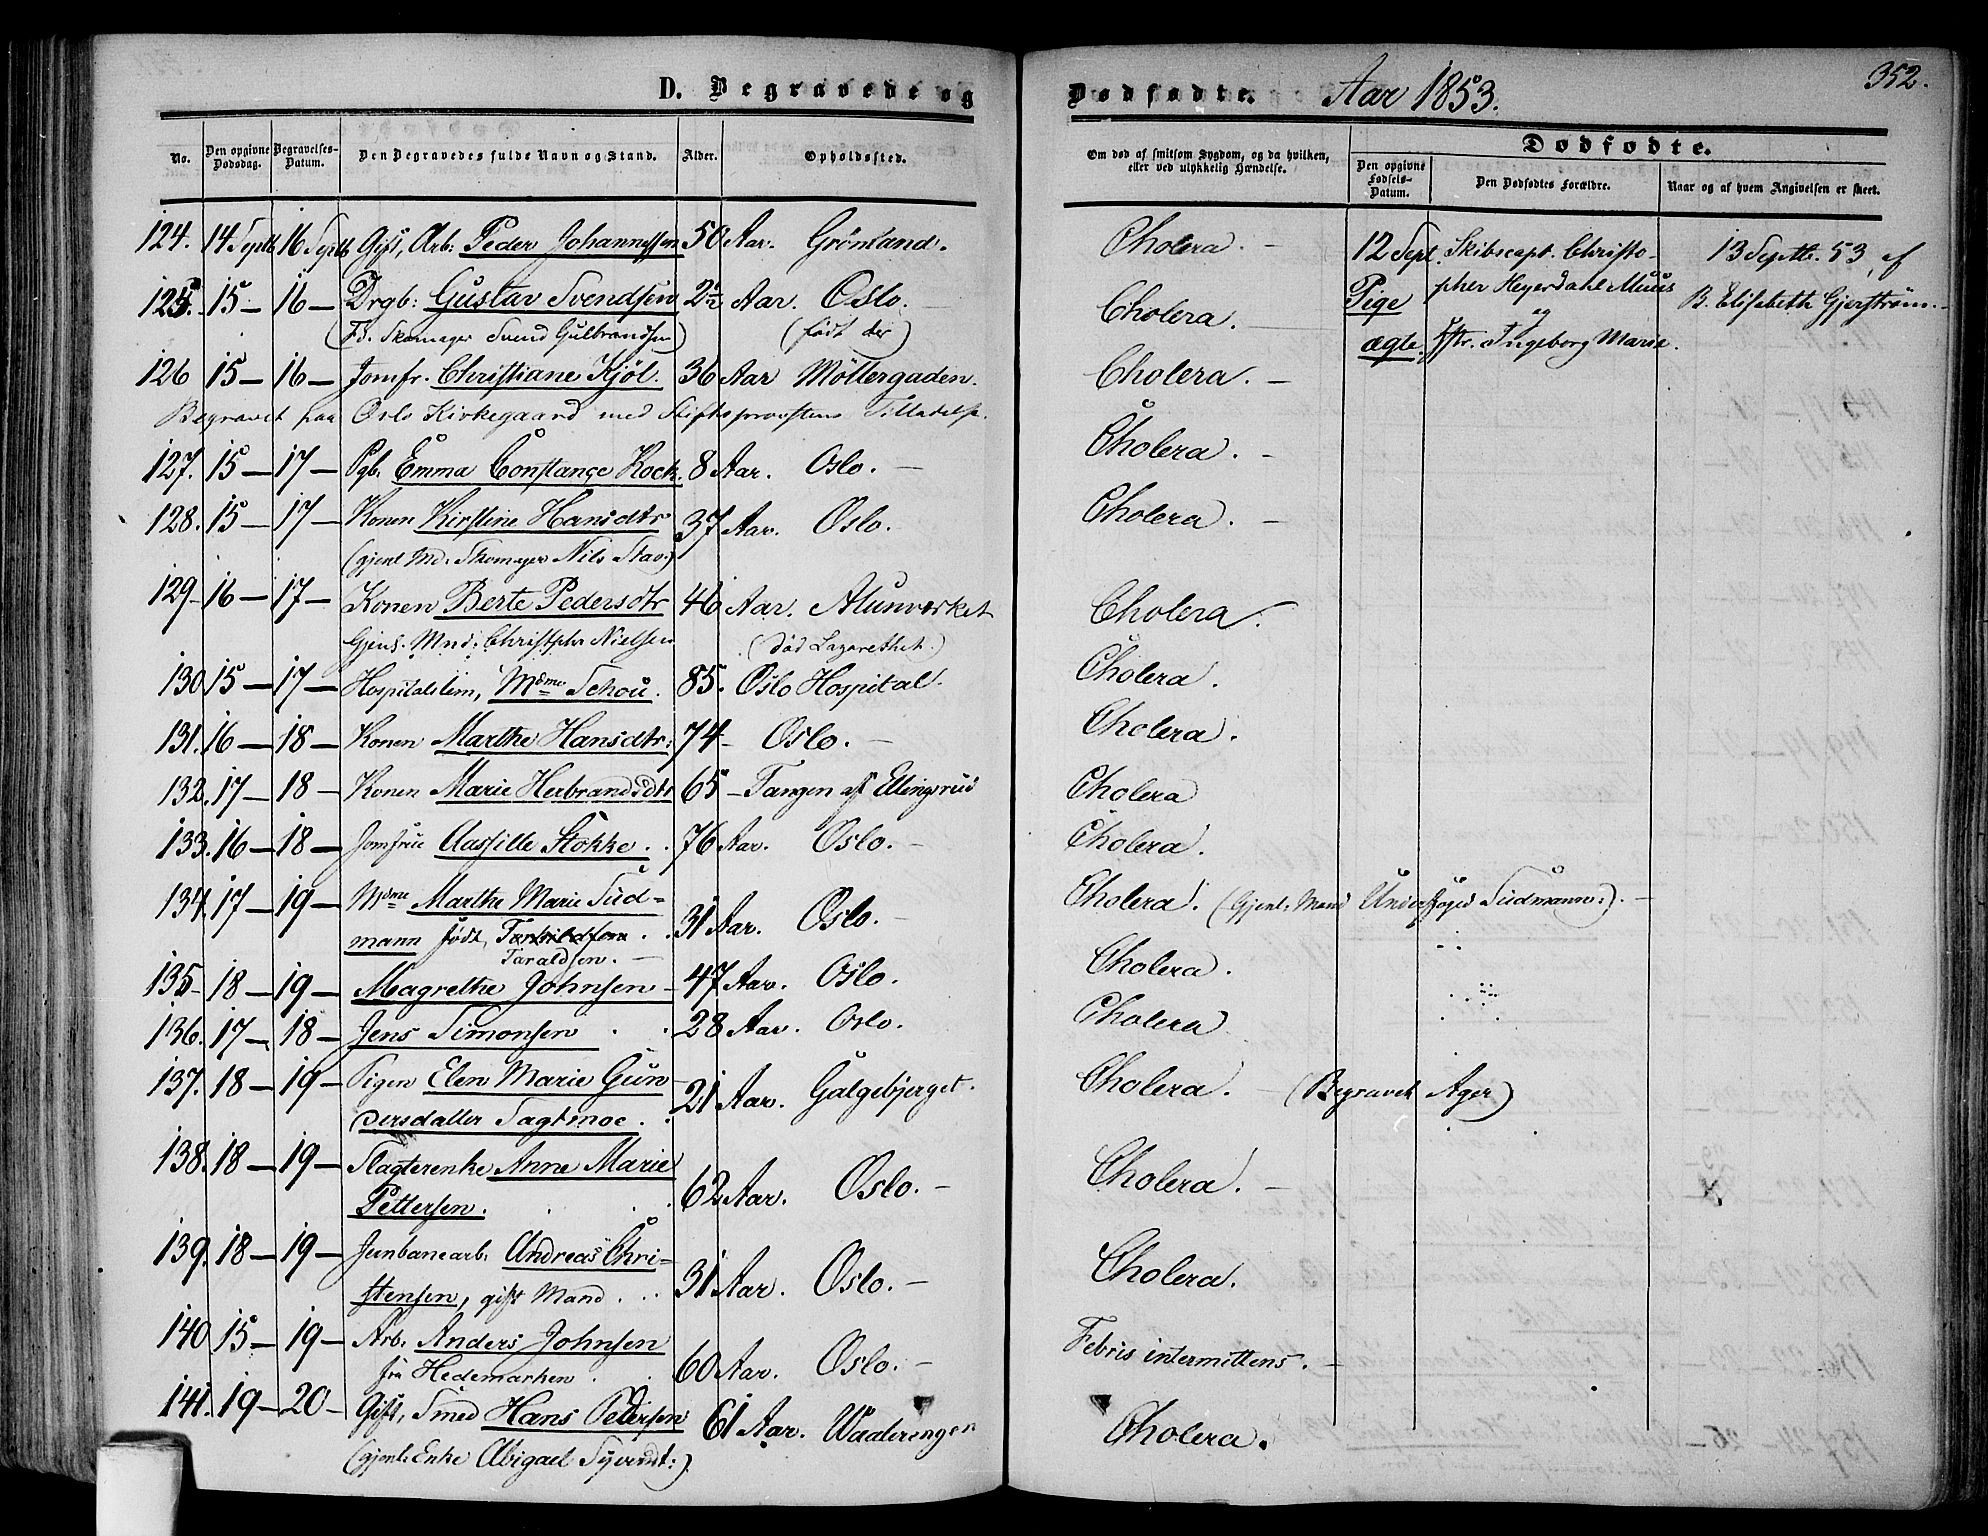 D. Begravede og Dødfødte. Aar 1853. 352.
No. Den opgivne Dødsdag. Begravelses-Datum. Den Begravedes fulde Navn og Stand. Alder. Opholdssted. Om død af smitsom Sygdom, og da hvilken, eller ved ulykkelig Hændelse. Dødfødte.
Den opgivne Fødsels-Datum. Den Dødfødtes Forældre. Naar og af hvem Angivelsen er skeet.
124. 14 Septb 16 Septb Gift, Arb: Peder Johannessen 50 Aar. Grönland. Cholera. — 12 Sept. Skibscapt. Christo- 13 Septb. 53, af
125. 15 — 16 — Drgb: Gustav Svendsen 2½ Aar. Oslo. — Cholera. Pige pher Heyerdahl Muus B. Elisabeth Gjerström.
(Fd. Skomager Svend Gulbrandsen) (födt der) og
ægte. Hstr. Ingeborg Marie.
126 15 — 16 — Jomfr. Christiane Kjöl. 36 Aar Möllergaden. Cholera. —
Begravet paa Oslo Kirkegaard med Stiftsprovstens Tilladelse.
127. 15 — 17 — Pgb. Emma Constance Kock. 8 Aar. Oslo. — Cholera. —
128. 15 — 17 — Konen Kirstine Hansdtr 37 Aar. Oslo. Cholera. —
(gjenl. Md. Skomager Nils Stav.)
129 — 16 — 17 — Konen Berte Pedersdtr 46 Aar. Alunverket Cholera.
Gjenl. Mnd: Christphr Nielsen (död Lazarethet.)
130 15 — 17 — Hospitalslem, Mdme Schou. 85. Oslo Hospital. Cholera.
131. 16 — 18 — Konen Marthe Hansdtr: 74 — Oslo. — Cholera.
132. 17 — 18 — Konen Marie Herbrandsdtr 65 — Tangen af Ellingsrud Cholera
133. 16 — 18 — Jomfrue Aassille Stokke. 76 Aar. Oslo. — Cholera.
134. 17 — 19 — Mdme Marthe Marie Sud= 31 Aar. Oslo. — Cholera. (Gjenl: Mand Underfoged Sudmann:). —
mann födt, Torkildsen
Taraldsen. —
135 — 18 — 19 — Magrethe Johnsen — 47 Aar. Oslo. Cholera.
136. 17 — 18 — Jens Simonsen 28 Aar. Oslo. Cholera
137. 18 — 19 — Pigen Elen Marie Gun 21 Aar. Galgebjerget. Cholera. — (Begravet Ager)
dersdatter Sagtmoe.
138. 18 — 19 — Slagterenke Anne Marie 62 Aar. Oslo. — Cholera. —
Pettersen.
139. 18 — 19 — Jernbanearb. Andreas Chri= 31 Aar. Oslo. — Cholera.
stensen, gift Mand.
140 15 — 19 — Arb: Anders Johnsen 60 Aar. Oslo. — Febris intermittens. —
fra Hedemarken
141. 19 — 20 — Gift, Smed Hans Pedersen 61 Aar. Waalerengen Cholera.
(gjenl: Enke Abigael Syverdt:).